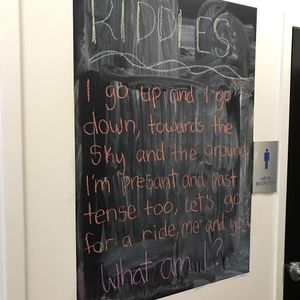 RIDDLES:
I go up and I go
down, towards the
sky and the ground
I'm present and past
tense too, let's go
for a ride, me and you
What am I?
MENS
RESTROOM